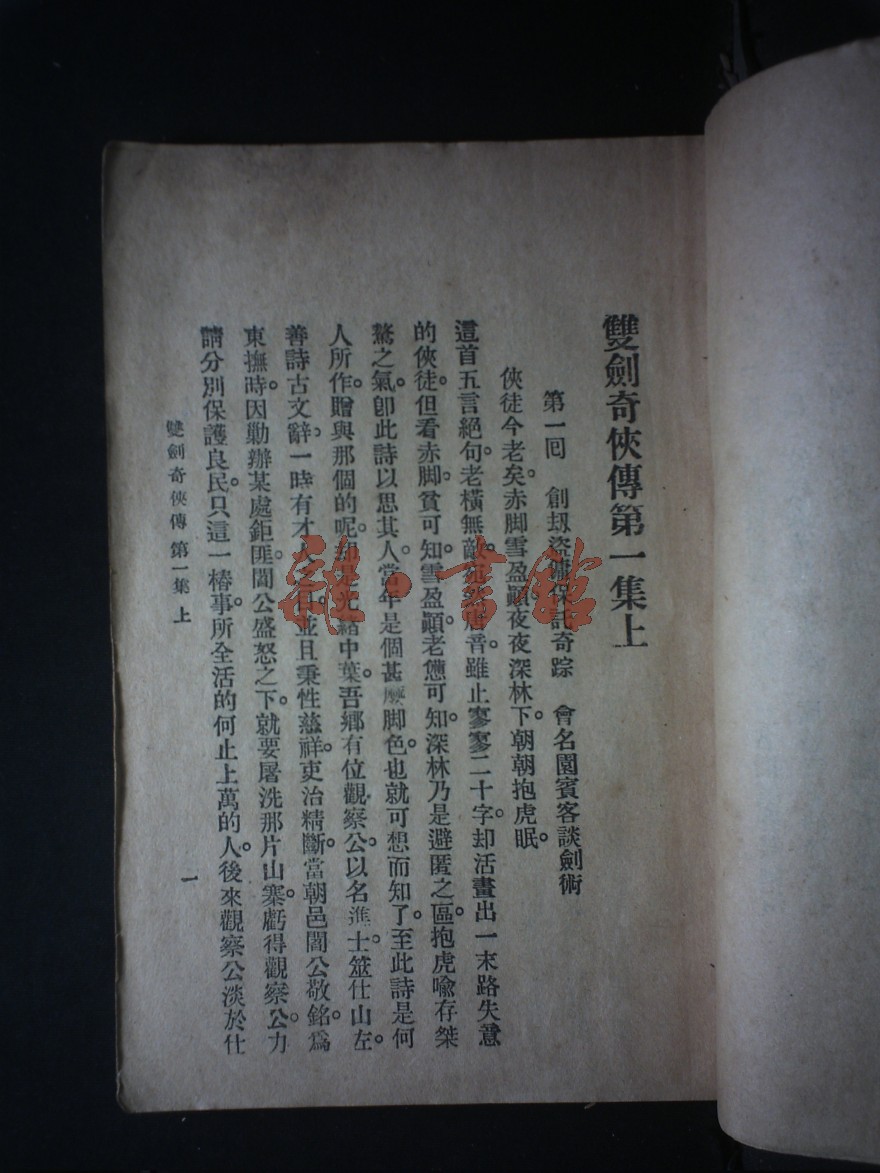 雙劍奇俠傳第一集上
第一回　創刼盜傭保託奇踪　會名園賓客談劍術
俠徒今老矣。赤脚雪盈顚。夜夜深林下。朝朝抱虎眠。
這首五言絕句。老橫無敵。音。雖止寥寥二十字。却活畫出一末路失意
的俠徒。但看赤脚。貧可知。雪盈顚。老憊可知。深林乃是避匿之區。抱虎喩存桀
驁之氣。卽此詩以思其人。當年是個甚麼脚色。也就可想而知了。至此詩是何
人所作。贈與那個的呢。却是光緒中葉。吾鄉有位觀察公。以名進士筮仕山左。
善詩古文辭。一時有才人之目。並且秉性慈祥。吏治精斷。當朝邑閻公敬銘。爲
東撫時。因勦辦某處鉅匪。閻公盛怒之下。就要屠洗那片山寨。虧得觀察公力
請分別保護良民。只這一樁事。所全活的何止上萬的人。後來觀察公淡於仕
雙劍奇俠傳　第一集　上
一
雜·書館